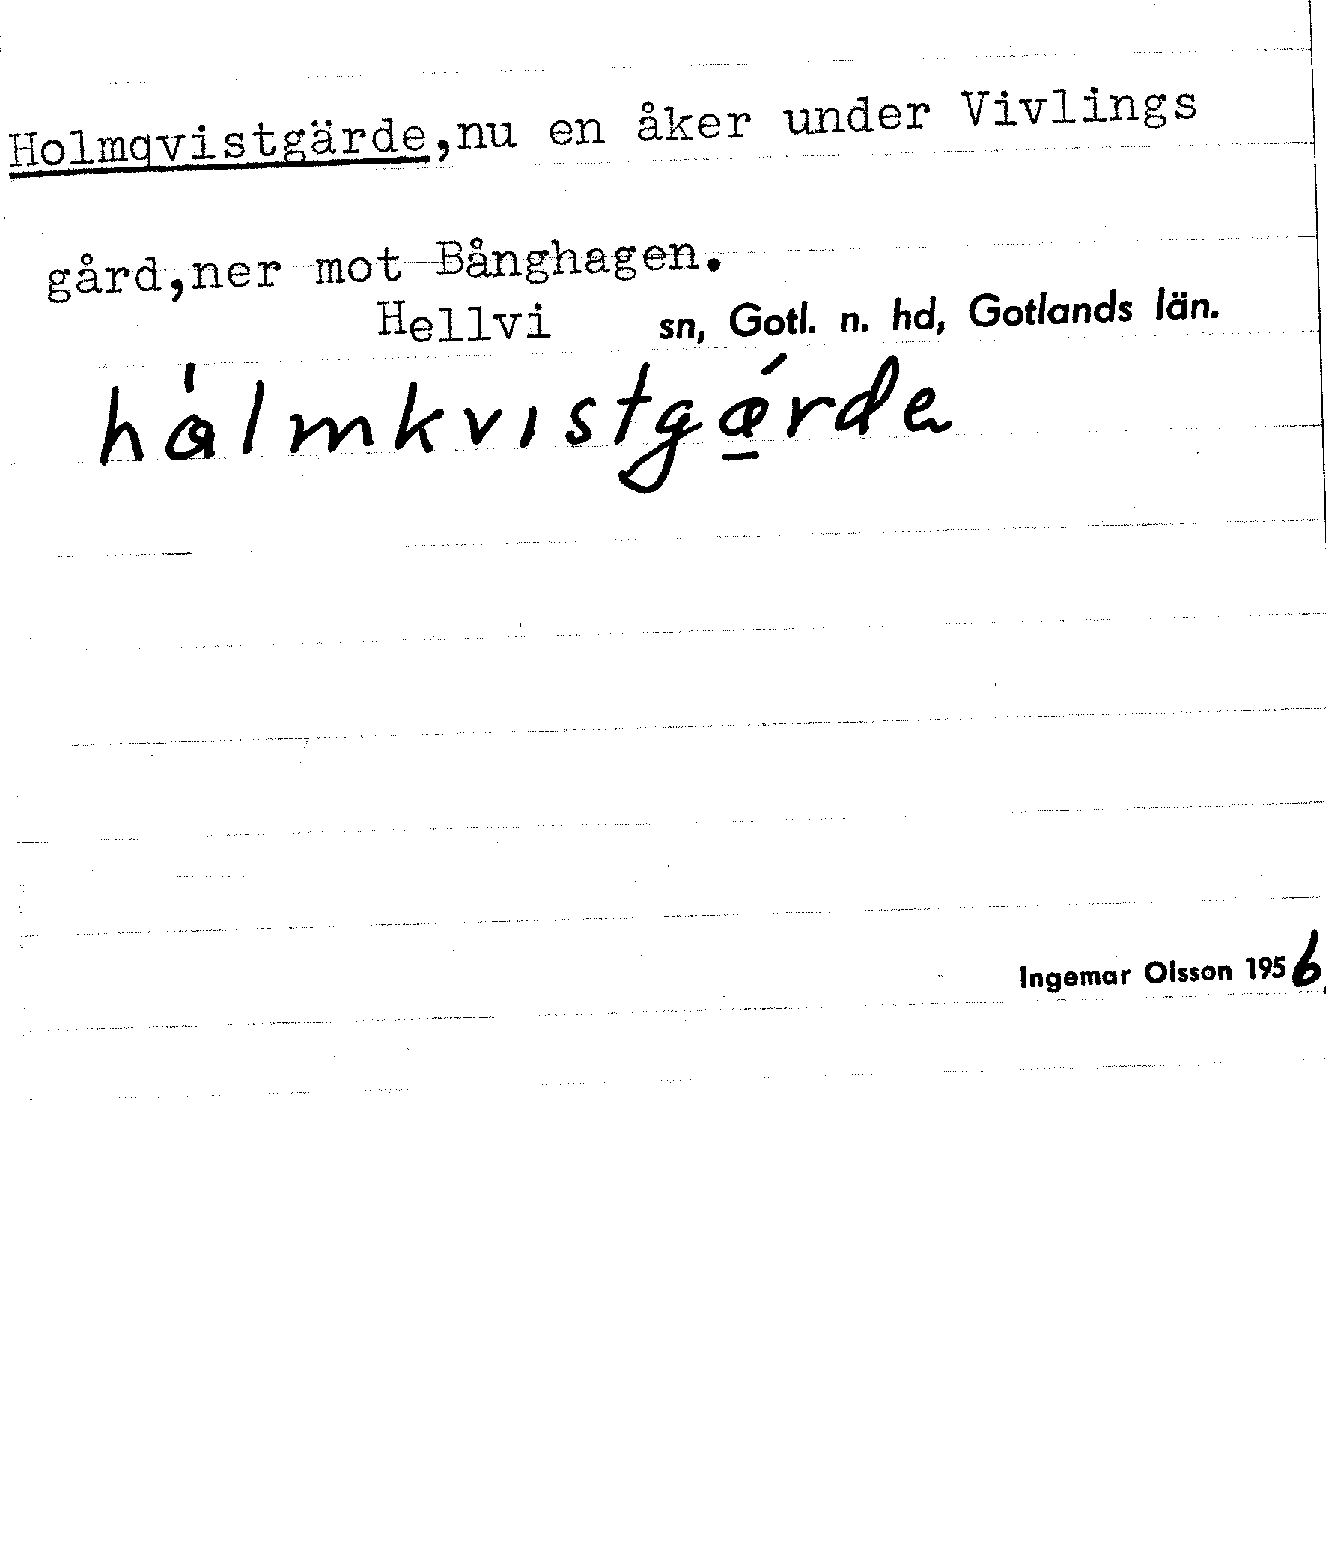 Holmqvistgärde,nu en åker under Vivlings
gård,ner mot Bånghagen.
Hellvi sn, Gotl. n. hd, Gotlands län.
hålmkvıstgǽ̱rde
Ingemar Olsson 1956